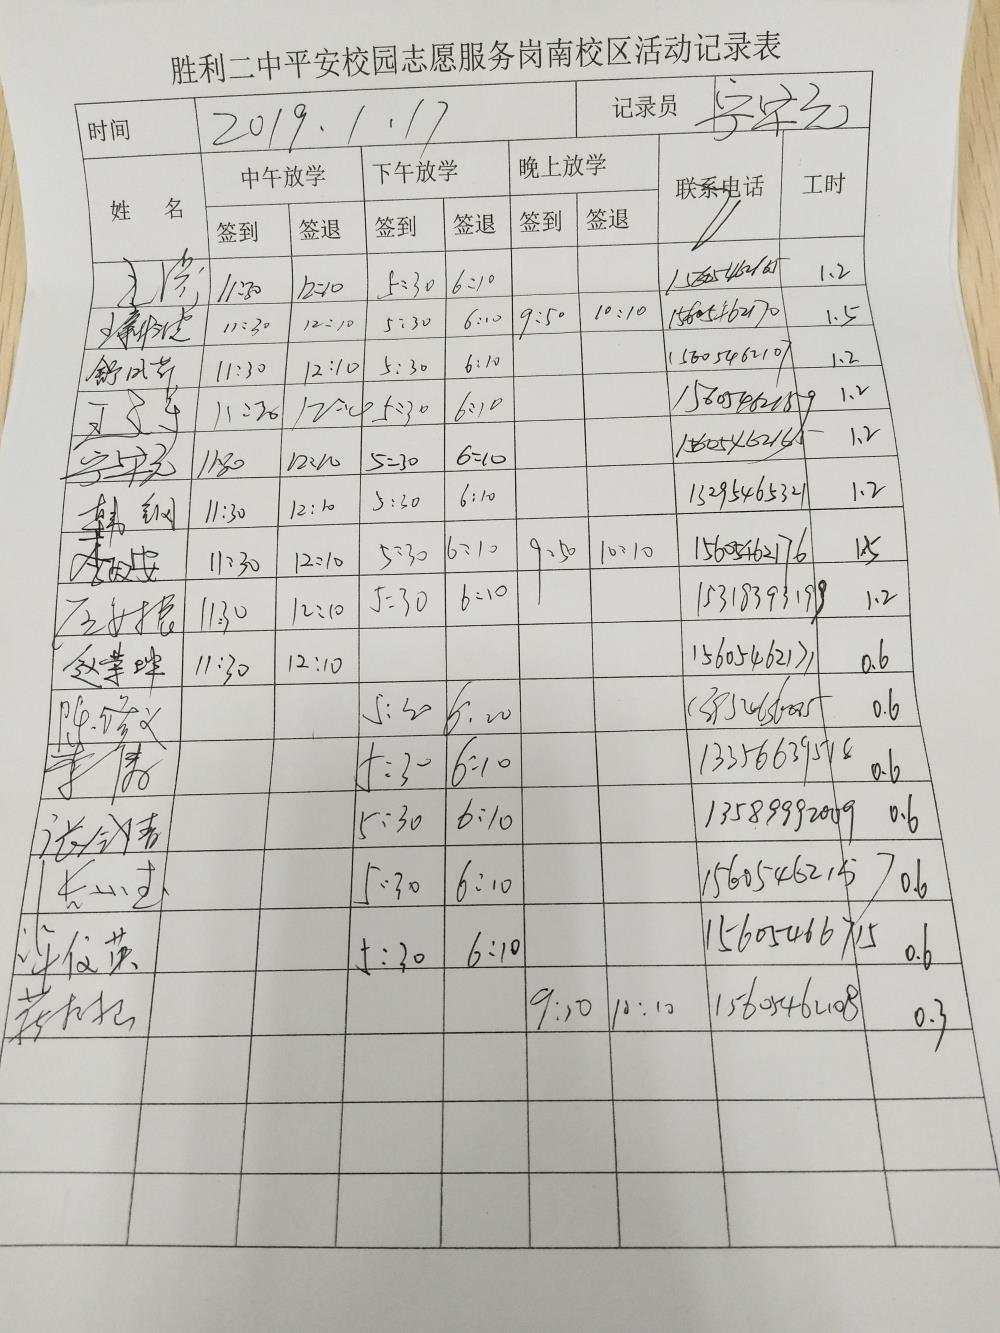 胜利二中平安校园志愿服务岗南校区活动记录表
时间 2019.1.17 记录员
姓 名 中午放学 下午放学 晚上放学 联系电话 工时
签到 签退 签到 签退 签到 签退
11:30 12:10 5:30 6:10 1.2
11:30 12:10 5:30 6:10 9:50 10:10 15605462170 1.5
舒风芹 11:30 12:10 5:30 6:10 15605462107 1.2
5:30 6:10 1.2
11:30 12:10 5:30 6:10 1.2
韩钢 11:30 12:10 5:30 6:10 13295465321 1.2
11:30 12:10 5:30 6:10 9:50 10:10 15605462176 1.5
11:30 12:10 5:30 6:10 15318393199 1.2
赵荣坤 11:30 12:10 15605462171 0.6
陈修义 6:20 0.6
李倩 5:30 6:10 0.6
5:30 6:10 13589992009 0.6
5:30 6:10 0.6
许俊英 5:30 6:10 0.6
10:10 15605462108 0.3